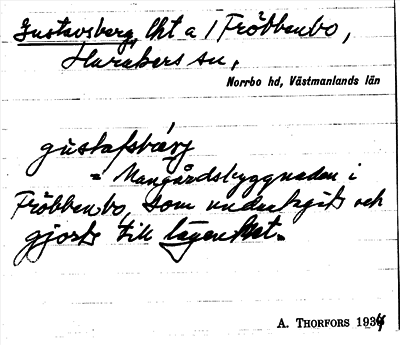 Gustavsberg, lht a 1 Fröbbenbo,
Harakers sn,
Norrbo hd, Västmanlands län
gústafsbærj
= Mangårdsbyggnaden i
Fröbbenbo, som underkgits och
gjorts till lägenhet.
A. THORFORS 1934